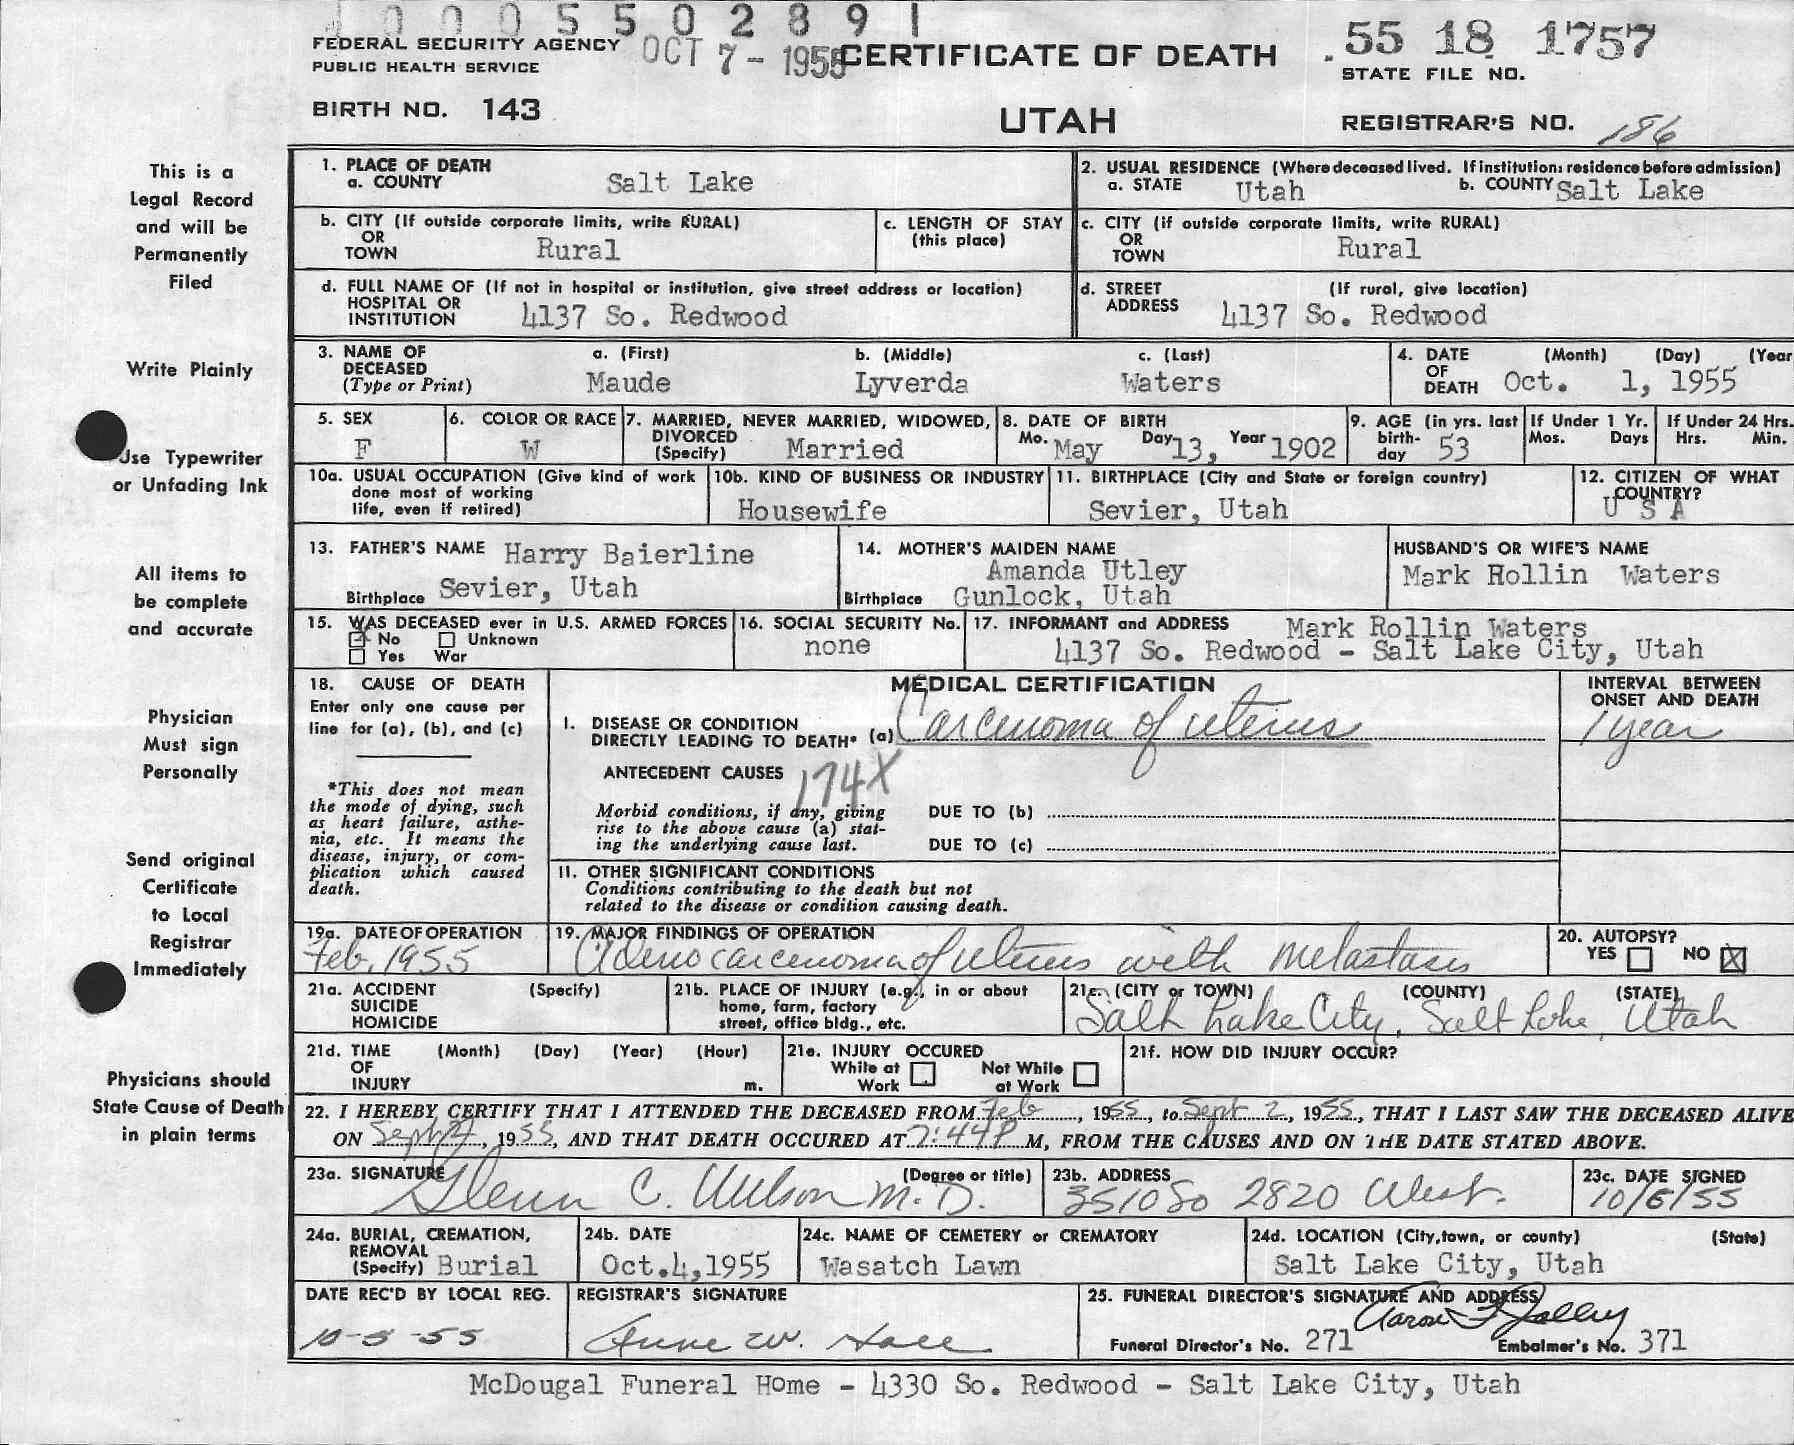 1000550289 1
FEDERAL SECURITY AGENCY
PUBLIC HEALTH SERVICE
OCT 7 - 1955
CERTIFICATE OF DEATH
55 18 1757
STATE FILE NO.
BIRTH NO. 143
UTAH
REGISTRAR'S NO. 186
This is a
Legal Record
and will be
Permanently
Filed
Write Plainly
Use Typewriter
or Unfading Ink
All items to
be complete
and accurate
Physician
Must sign
Personally
Send original
Certificate
to Local
Registrar
Immediately
Physicians should
State Cause of Death
in plain terms
1. PLACE OF DEATH
a. COUNTY Salt Lake
2. USUAL RESIDENCE (Where deceased lived. If institution: residence before admission)
a. STATE Utah b. COUNTY Salt Lake
b. CITY (If outside corporate limits, write RURAL)
OR
TOWN Rural
c. LENGTH OF STAY
(this place)
c. CITY (if outside corporate limits, write RURAL)
OR
TOWN Rural
d. FULL NAME OF (If not in hospital or institution, give street address or location)
HOSPITAL OR
INSTITUTION 4137 So. Redwood
d. STREET (If rural, give location)
ADDRESS 4137 So. Redwood
3. NAME OF a. (First) b. (Middle) c. (Last)
DECEASED
(Type or Print) Maude Lyverda Waters
4. DATE (Month) (Day) (Year
OF
DEATH Oct. 1, 1955
5. SEX
F
6. COLOR OR RACE
W
7. MARRIED, NEVER MARRIED, WIDOWED,
DIVORCED
(Specify) Married
8. DATE OF BIRTH
Mo. May Day 13, Year 1902
9. AGE (in yrs. last
birth-
day 53
If Under 1 Yr.
Mos. Days
If Under 24 Hrs.
Hrs. Min.
10a. USUAL OCCUPATION (Give kind of work
done most of working
life, even if retired)
10b. KIND OF BUSINESS OR INDUSTRY
Housewife
11. BIRTHPLACE (City and State or foreign country)
Sevier, Utah
12. CITIZEN OF WHAT
COUNTRY?
U S A
13. FATHER'S NAME Harry Baierline
Birthplace Sevier, Utah
14. MOTHER'S MAIDEN NAME
Amanda Utley
Birthplace Gunlock, Utah
HUSBAND'S OR WIFE'S NAME
Mark Rollin Waters
15. WAS DECEASED ever in U.S. ARMED FORCES
No Unknown
Yes War
16. SOCIAL SECURITY No.
none
17. INFORMANT and ADDRESS Mark Rollin Waters
4137 So. Redwood - Salt Lake City, Utah
18. CAUSE OF DEATH
Enter only one cause per
line for (a), (b), and (c)
*This does not mean
the mode of dying, such
as heart failure, asthe-
nia, etc. It means the
disease, injury, or com-
plication which caused
death.
MEDICAL CERTIFICATION
I. DISEASE OR CONDITION
DIRECTLY LEADING TO DEATH* (a) Carcenoma of uterus
INTERVAL BETWEEN
ONSET AND DEATH
1 year
ANTECEDENT CAUSES 174X
Morbid conditions, if any, giving
rise to the above cause (a) stat-
ing the underlying cause last.
DUE TO (b)
DUE TO (c)
11. OTHER SIGNIFICANT CONDITIONS
Conditions contributing to the death but not
related to the disease or condition causing death.
19a. DATE OF OPERATION
Feb. 1955
19. MAJOR FINDINGS OF OPERATION
Adenocarcenoma of uterus with metastasis
20. AUTOPSY?
YES NO X
21a. ACCIDENT (Specify)
SUICIDE
HOMICIDE
21b. PLACE OF INJURY (e.g., in or about
home, farm, factory
street, office bldg., etc.
21c. (CITY or TOWN) (COUNTY) (STATE)
Salt Lake City, Salt Lake, Utah
21d. TIME (Month) (Day) (Year) (Hour)
OF
INJURY m.
21e. INJURY OCCURED
While at Not While
Work at Work
21f. HOW DID INJURY OCCUR?
22. I HEREBY CERTIFY THAT I ATTENDED THE DECEASED FROM Feb, 1955, to Sept 2, 1955, THAT I LAST SAW THE DECEASED ALIVE
ON Sept 2, 1955, AND THAT DEATH OCCURED AT 7:44P M, FROM THE CAUSES AND ON THE DATE STATED ABOVE.
23a. SIGNATURE (Degree or title)
Glenn C. Wilson M.D.
23b. ADDRESS
3510 So 2820 West.
23c. DATE SIGNED
10/6/55
24a. BURIAL, CREMATION,
REMOVAL
(Specify) Burial
24b. DATE
Oct.4,1955
24c. NAME OF CEMETERY or CREMATORY
Wasatch Lawn
24d. LOCATION (City,town, or county) (State)
Salt Lake City, Utah
DATE REC'D BY LOCAL REG.
10-5-55
REGISTRAR'S SIGNATURE
June W. Hall
25. FUNERAL DIRECTOR'S SIGNATURE AND ADDRESS
Aaron F Jolley
Funeral Director's No. 271 Embalmer's No. 371
McDougal Funeral Home - 4330 So. Redwood - Salt Lake City, Utah